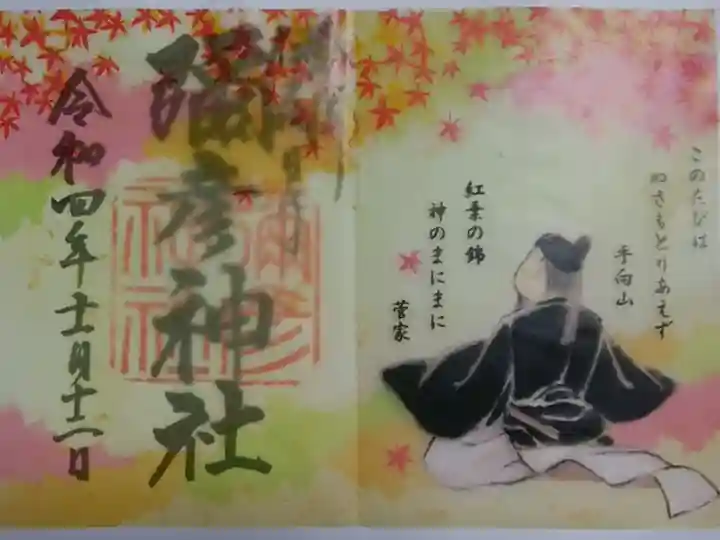 このたびは
ぬさもとりあえず
手向山
紅葉の錦
神のまにまに
菅家
彌彦神社
令和四年十一月十一日